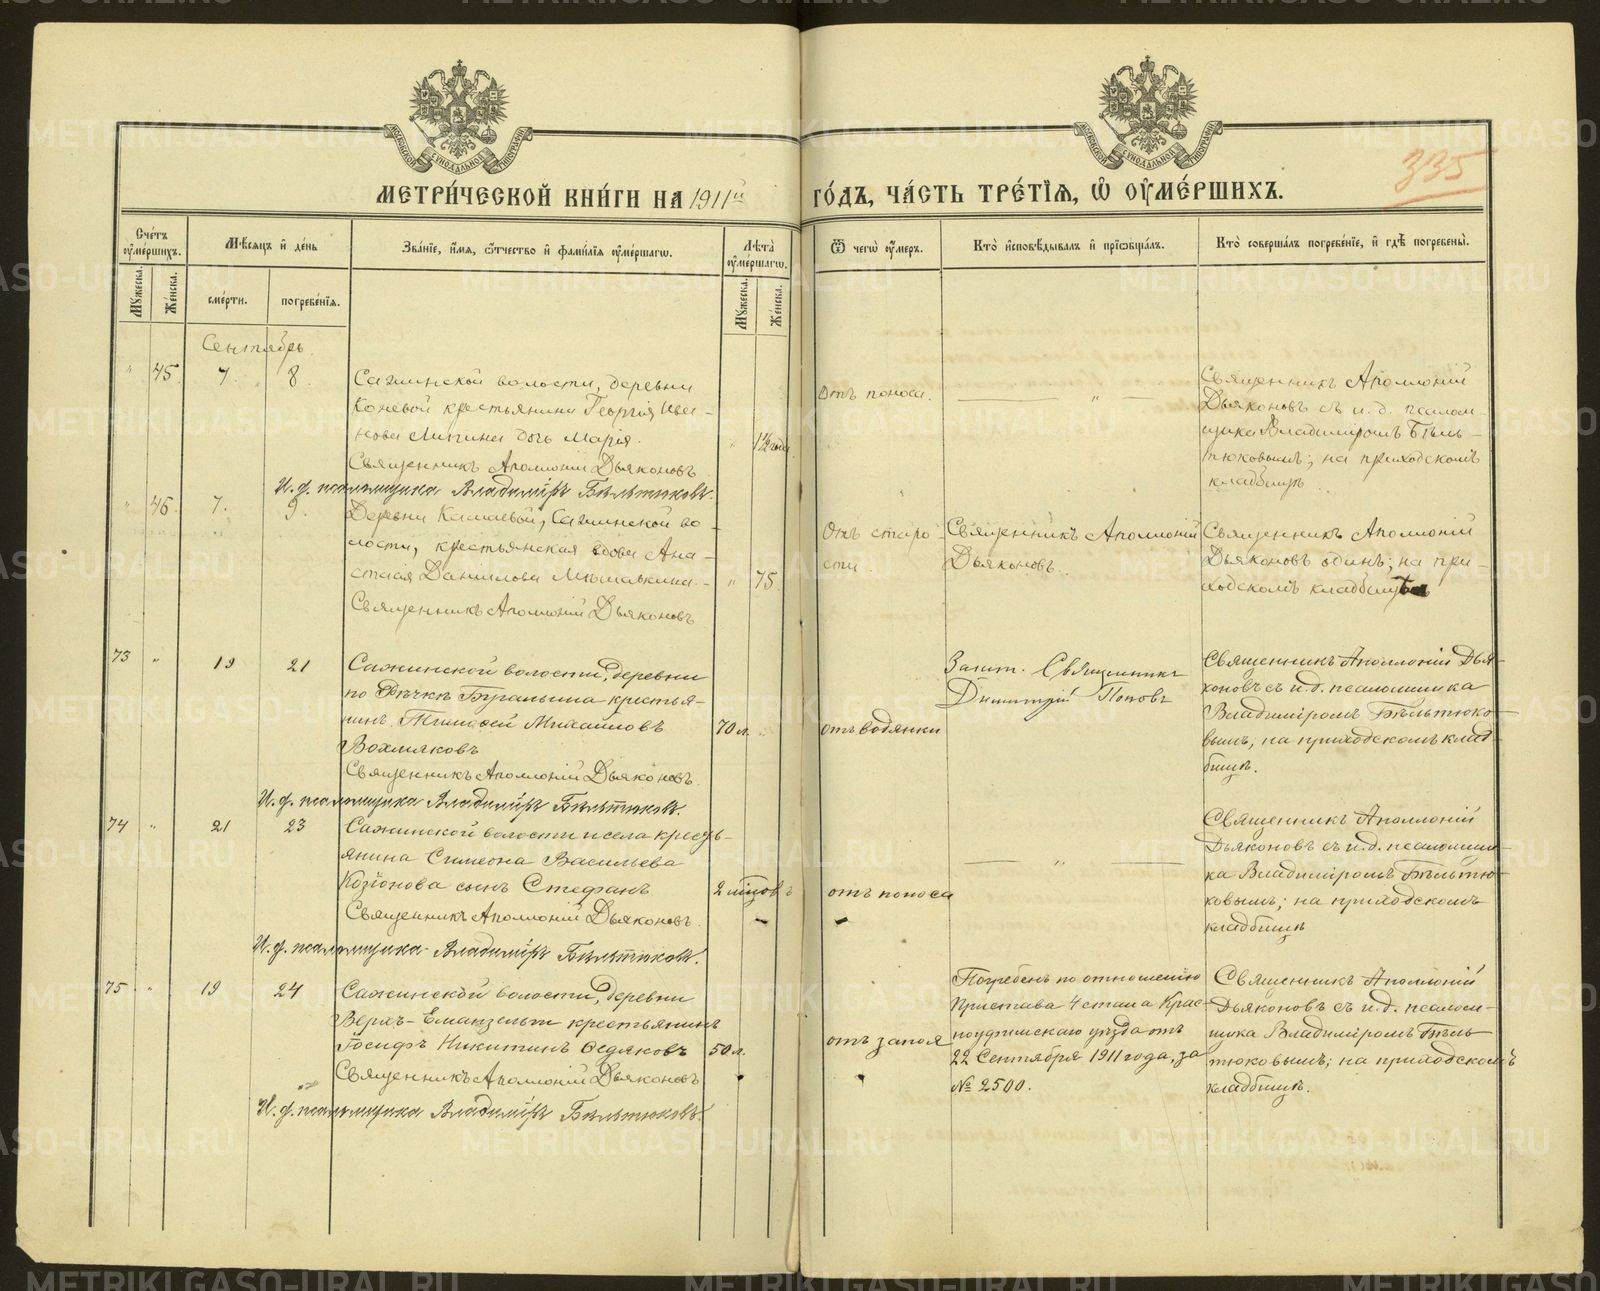 МЕТРИ́ЧЕСКОЙ КНИ́ГИ НА 1911й ГО́ДЪ, ЧА́СТЬ ТРЕ́ТІЯ, Ѡ҆ ОУ҆МЕ́РШИХЪ.
335
Сче́тъ оу҆ме́ршихъ.
Мꙋ́жеска.
Же́нска.
Мѣ́сяцъ и҆ де́нь
сме́рти.
погребе́нїя.
Зва́нїе, и҆́мя, ѻ҆́тчество и҆ фами́лїя оу҆ме́ршагѡ.
Лѣ́та оу҆ме́ршагѡ.
Мꙋ́жеска.
Же́нска.
Ѿ чегѡ̀ оу҆́меръ.
Кто̀ и҆сповѣ́дывалъ и҆ прїѡбща́лъ.
Кто̀ соверша́лъ погребе́нїе, и҆ гдѣ̀ погребены̀.
Сентябрь
" 45 7. 8.
Сажинской волости, деревни
Коневой крестьянина Георгія Ива-
нова Липина дочь Марія.
" 1½ года
Священникъ Аполлоній Дьяконовъ
И. д. псаломщика Владиміръ Бѣльтюковъ.
Отъ поноса.
"
Священникъ Аполлоній
Дьяконовъ съ и. д. псалом-
щика Владиміромъ Бѣль-
тюковымъ; на приходскомъ
кладбищѣ
" 46 7. 9.
Деревни Камаевой, Сажинской во-
лости, крестьянская вдова Ана-
стасія Даніилова
" 75
Священникъ Аполлоній Дьяконовъ
Отъ старо-
сти.
Священникъ Аполлоній
Дьяконовъ.
Священникъ Аполлоній
Дьяконовъ одинъ; на при-
ходскомъ кладбищѣ
73 " 19 21
Сажинской волости, деревни
по Рѣчкѣ крестья-
нинъ Тимоѳей Михайловъ
Вохмяковъ
70 л. "
Священникъ Аполлоній Дьяконовъ.
И. д. псаломщика Владиміръ Бѣльтюковъ.
отъ водянки
Священникъ
Димитрій Поповъ
Священникъ Аполлоній Дья-
коновъ съ и. д. псаломщика
Владиміромъ Бѣльтюко-
вымъ, на приходскомъ клад-
бищѣ.
74 " 21 23
Сажинской волости и села кресть-
янина Симеона Васильева
Козіонова сынъ Стефанъ
2 мѣсяцовъ
Священникъ Аполлоній Дьяконовъ.
И. д. псаломщика Владиміръ Бѣльтюковъ.
отъ поноса
"
Священникъ Аполлоній
Дьяконовъ съ и. д. псаломщи-
ка Владиміромъ Бѣльтю-
ковымъ; на приходскомъ
кладбищѣ
75 " 19 24
Сажинской волости, деревни
Верхъ-Еманзельги крестьянинъ
Іосифъ Никитинъ Ѳедяковъ
50 л.
Священникъ Аполлоній Дьяконовъ
И. д. псаломщика Владиміръ Бѣльтюковъ.
отъ запоя
Погребенъ по отношенію
Пристава 4 стана Крас-
ноуфимскаго уѣзда отъ
22 Сентября 1911 года, за
№ 2500.
Священникъ Аполлоній
Дьяконовъ съ и. д. псалом-
щика Владиміромъ Бѣль
тюковымъ; на приходскомъ
кладбищѣ.
METRIKI.GASO-URAL.RU